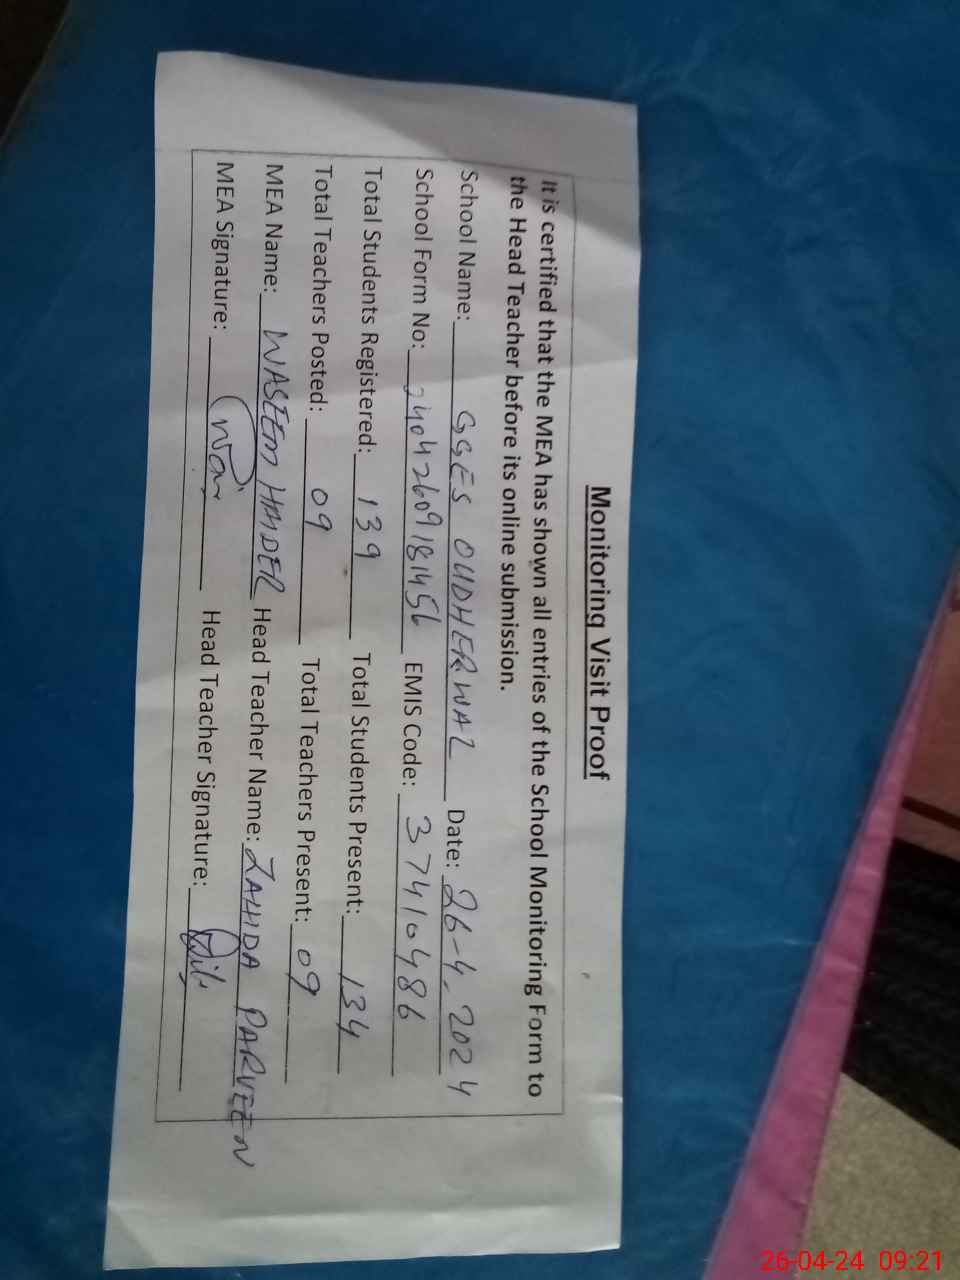 Monitoring Visit Proof
It is certified that the MEA has shown all entries of the School Monitoring Form to
the Head Teacher before its online submission.
School Name: GGES OUDHERWAL Date: 26-4-2024
School Form No: 24042609181456 EMIS Code: 37410486
Total Students Registered: 139 Total Students Present: 134
Total Teachers Posted: 09 Total Teachers Present: 09
MEA Name: WASEEM HAIDER Head Teacher Name: ZAHIDA PARVEEN
MEA Signature: Head Teacher Signature:
26-04-24 09:21